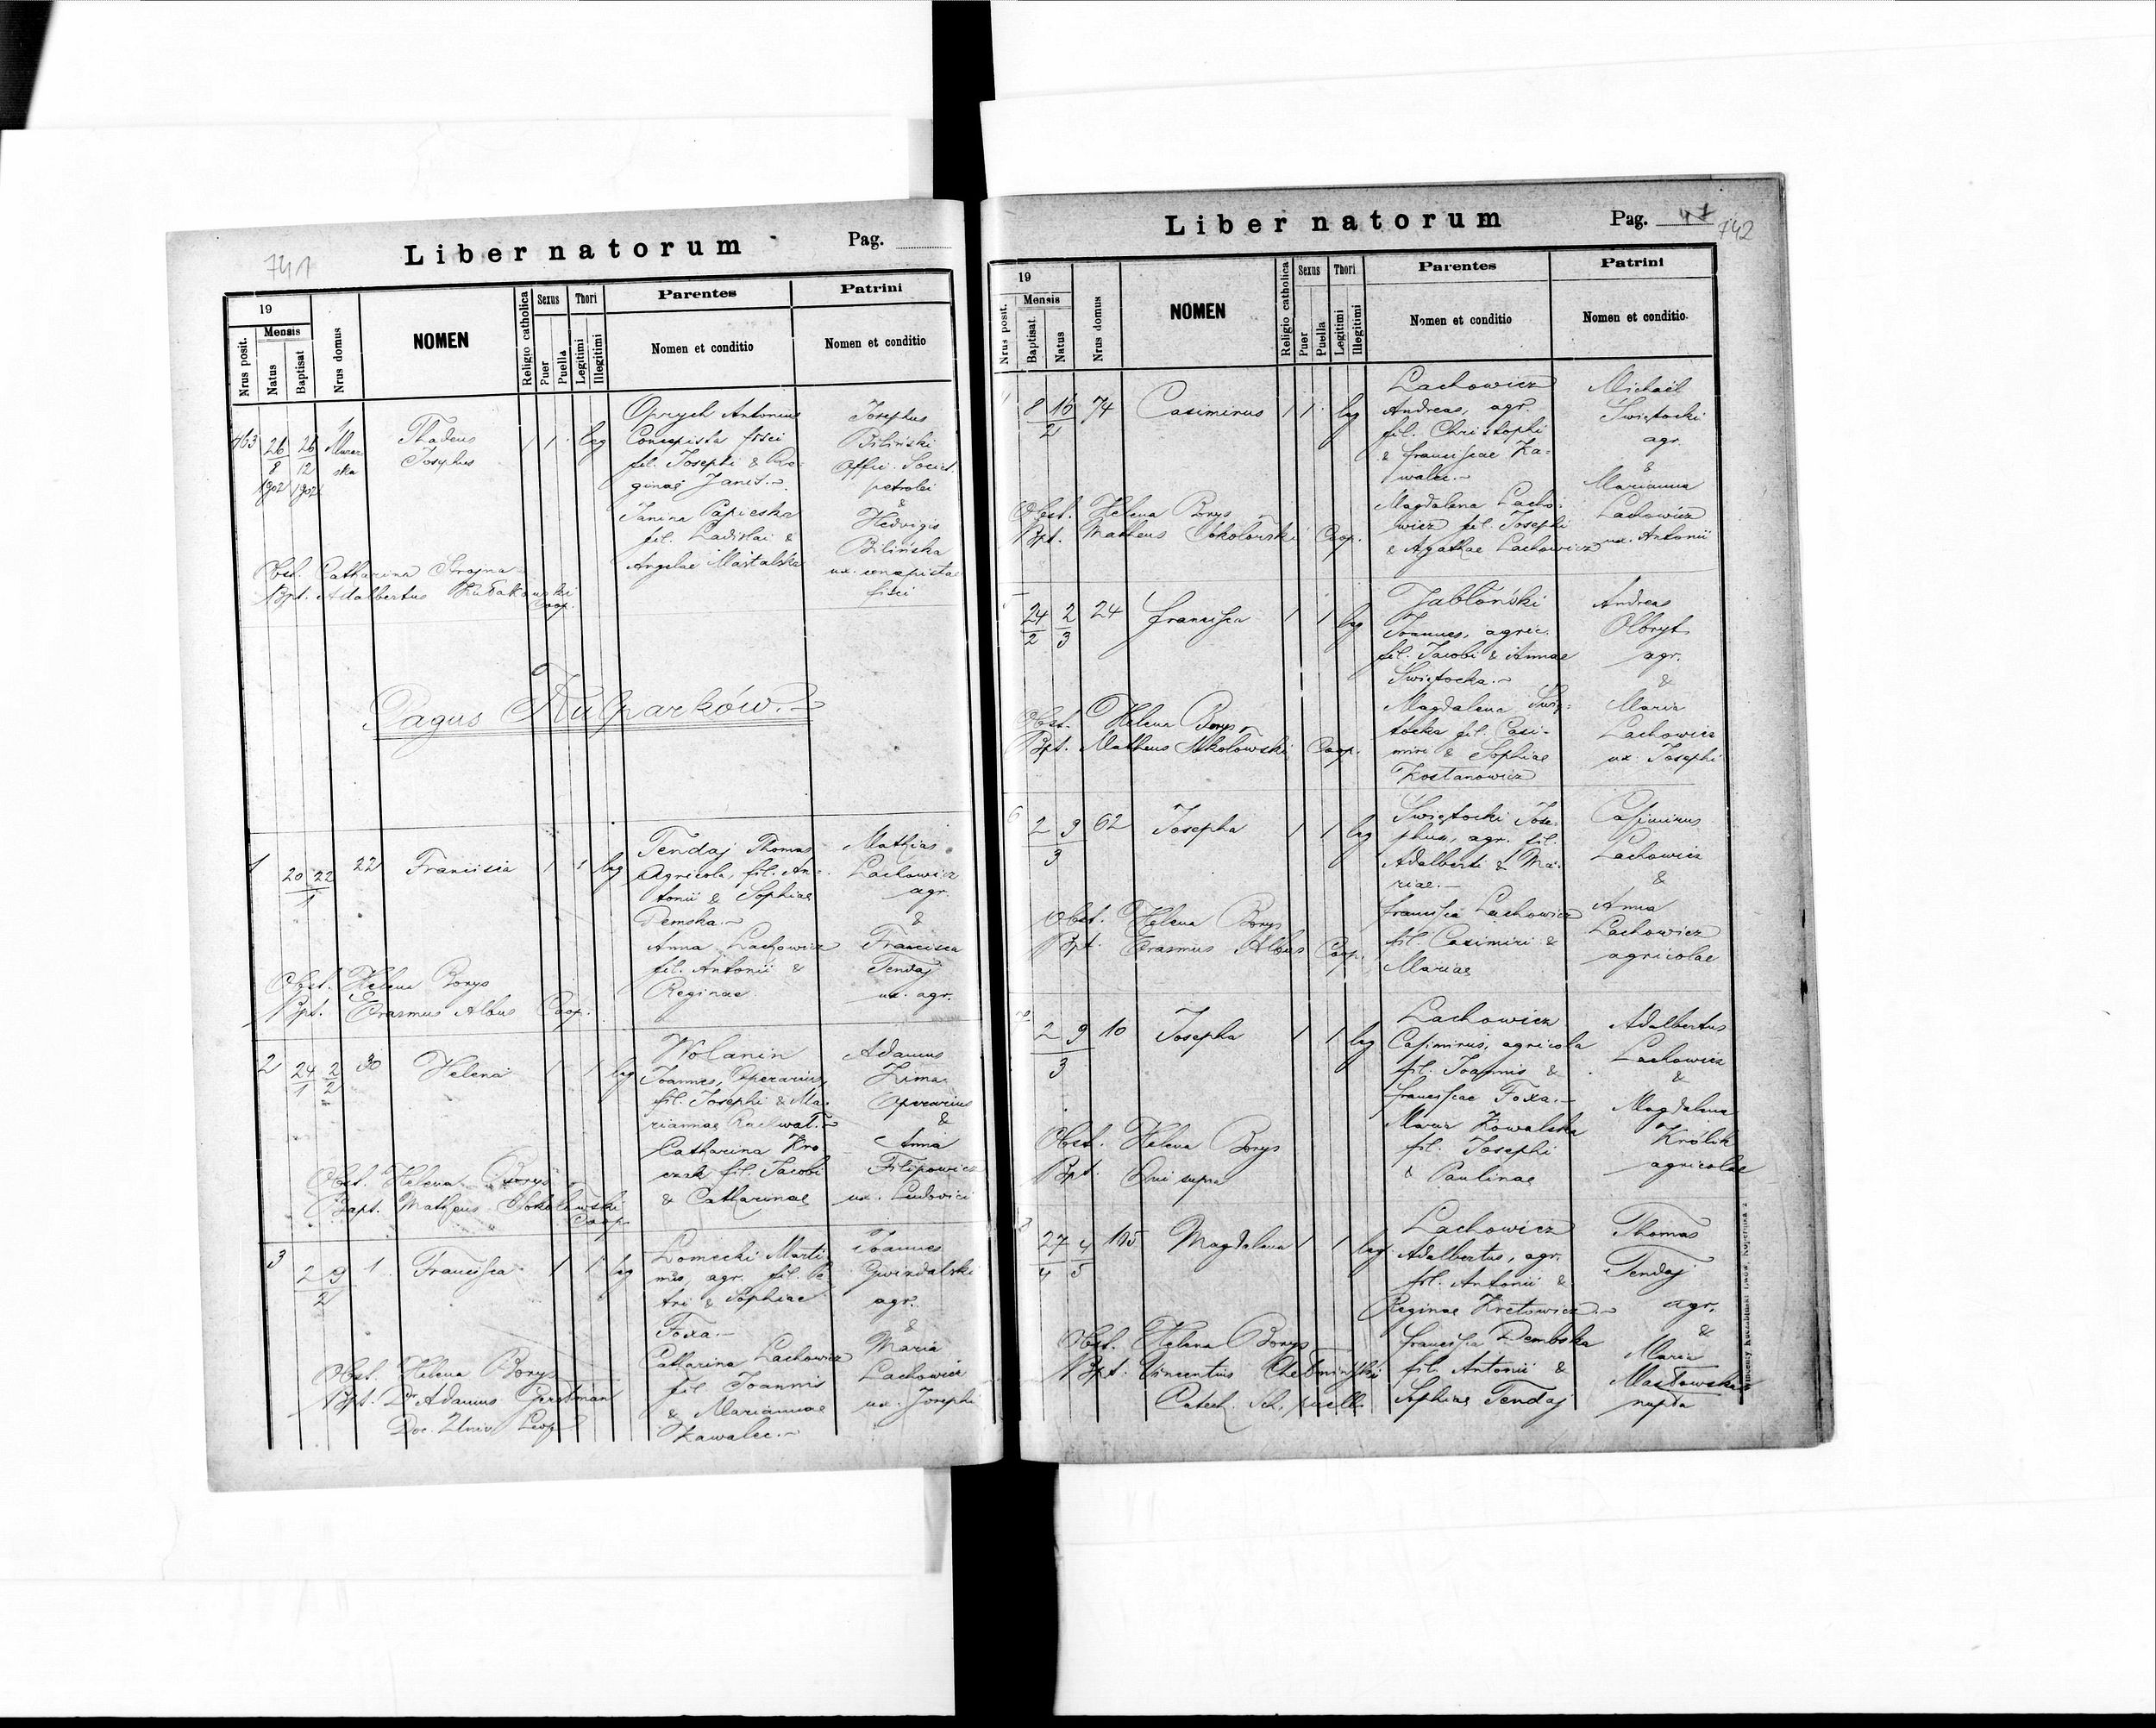 741
Liber natorum
Pag.
19
Mensis
Nrus posit.
Natus
Baptisat
Nrus domus
NOMEN
Religio catholica
Sexus
Puer
Puella
Thori
Legitimi
Illegitimi
Parentes
Nomen et conditio
Patrini
Nomen et conditio
26 26
8 12
1902 1902
Thadeus
Josephus
1 1 leg
Oprych Antonius
Concepista fisci
fil. Josephi & Re-
ginae
Janina Papieska
fil. Ladislai &
Angelae Mastalska
Josephus
Biliński
Offic. Societ.
petrolei
&
Hedvigis
Bilińska
ux. concepistae
fisci
Obst. Catharina Strojna
Bpt. Adalbertus
Coop.
Pagus Kulparków.
1 20 22 22 Francisca 1 1 leg
1
Tendaj Thomas
Agricola, fil. An-
tonii & Sophiae
Demska.
Anna Lachowicz
fil. Antonii &
Reginae
Mathias
Lachowicz
agr.
&
Francisca
Tendaj
ux. agr.
Obst. Helena Borys
Bpt. Erasmus Albus Coop.
2 24 2 30 Helena 1 1 leg
1 2
Wolanin
Joannes, Operarius,
fil. Josephi & Ma-
riannae
Catharina Kro
czak fil. Jacobi
& Catharinae
Adamus
Zima
Operarius
&
Anna
Filipowicz
ux. Ludovici
Obst. Helena Borys
Bapt. Matheus Sokołowski
Coop.
3 2 9 1 Francisca 1 1 leg
2
Lomecki Marti-
nus, agr. fil. Pe-
tri & Sophiae
Foxa.
Catharina Lachowicz
fil. Joannis
& Mariannae
Kawalec.
Joannes
agr.
&
Maria
Lachowicz
ux. Josephi
Obst. Helena Borys
Bpt. Dr Adamus Gerstman
Doc. Univ. Leop.
Liber natorum
Pag. 47
742
19
Mensis
Nrus posit.
Baptisat.
Natus
Nrus domus
NOMEN
Religio catholica
Sexus
Puer
Puella
Thori
Legitimi
Illegitimi
Parentes
Nomen et conditio
Patrini
Nomen et conditio.
8 16 74 Casimirus 1 1 leg
2
Lachowicz
Andreas, agr.
fil. Christophi
& Franciscae Ka-
walec.
Magdalena Lacho-
wicz fil. Josephi
& Agathae Lachowicz
Michaël
Świętocki
agr.
&
Marianna
Lachowicz
ux. Antonii
Obst. Helena Borys
Bpt. Matheus Sokołowski Coop.
24 2 24 Francisca 1 1 leg
2 3
Jabłoński
Joannes, agric.
fil. Jacobi & Annae
Świętocka.
Magdalena Świę-
tocka fil. Casi-
miri & Sophiae
Kostanowicz
Andreas
Olbryt
agr.
&
Maria
Lachowicz
ux. Josephi
Obst. Helena Borys
Bpt. Matheus Sokołowski Coop.
6 2 9 62 Josepha 1 1 leg
3
Świętocki Jose-
phus, agr. fil.
Adalberti & Ma-
riae.
Francisca Lachowicz
fil. Casimiri &
Mariae
Casimirus
Lachowicz
&
Anna
Lachowicz
agricolae
Obst. Helena Borys
Bpt. Erasmus Albus Coop.
7 2 9 10 Josepha 1 1 leg
3
Lachowicz
Casimirus, agricola
fil. Joannis &
Franciscae Foxa.
Maria Kowalska
fil. Josephi
& Paulinae
Adalbertus
Lachowicz
&
Magdalena
Królik
agricolae
Obst. Helena Borys
Bpt. Qui supra
8 27 4 105 Magdalena 1 1 leg
4 5
Lachowicz
Adalbertus, agr.
fil. Antonii &
Reginae Kretowicz.
Francisca Dembska
fil. Antonii &
Sophiae Tendaj
Thomas
Tendaj
agr.
&
Maria
Masłowska
nupta
Obst. Helena Borys
Bpt. Vincentius Chełmiński
Catech. Sch. puell.